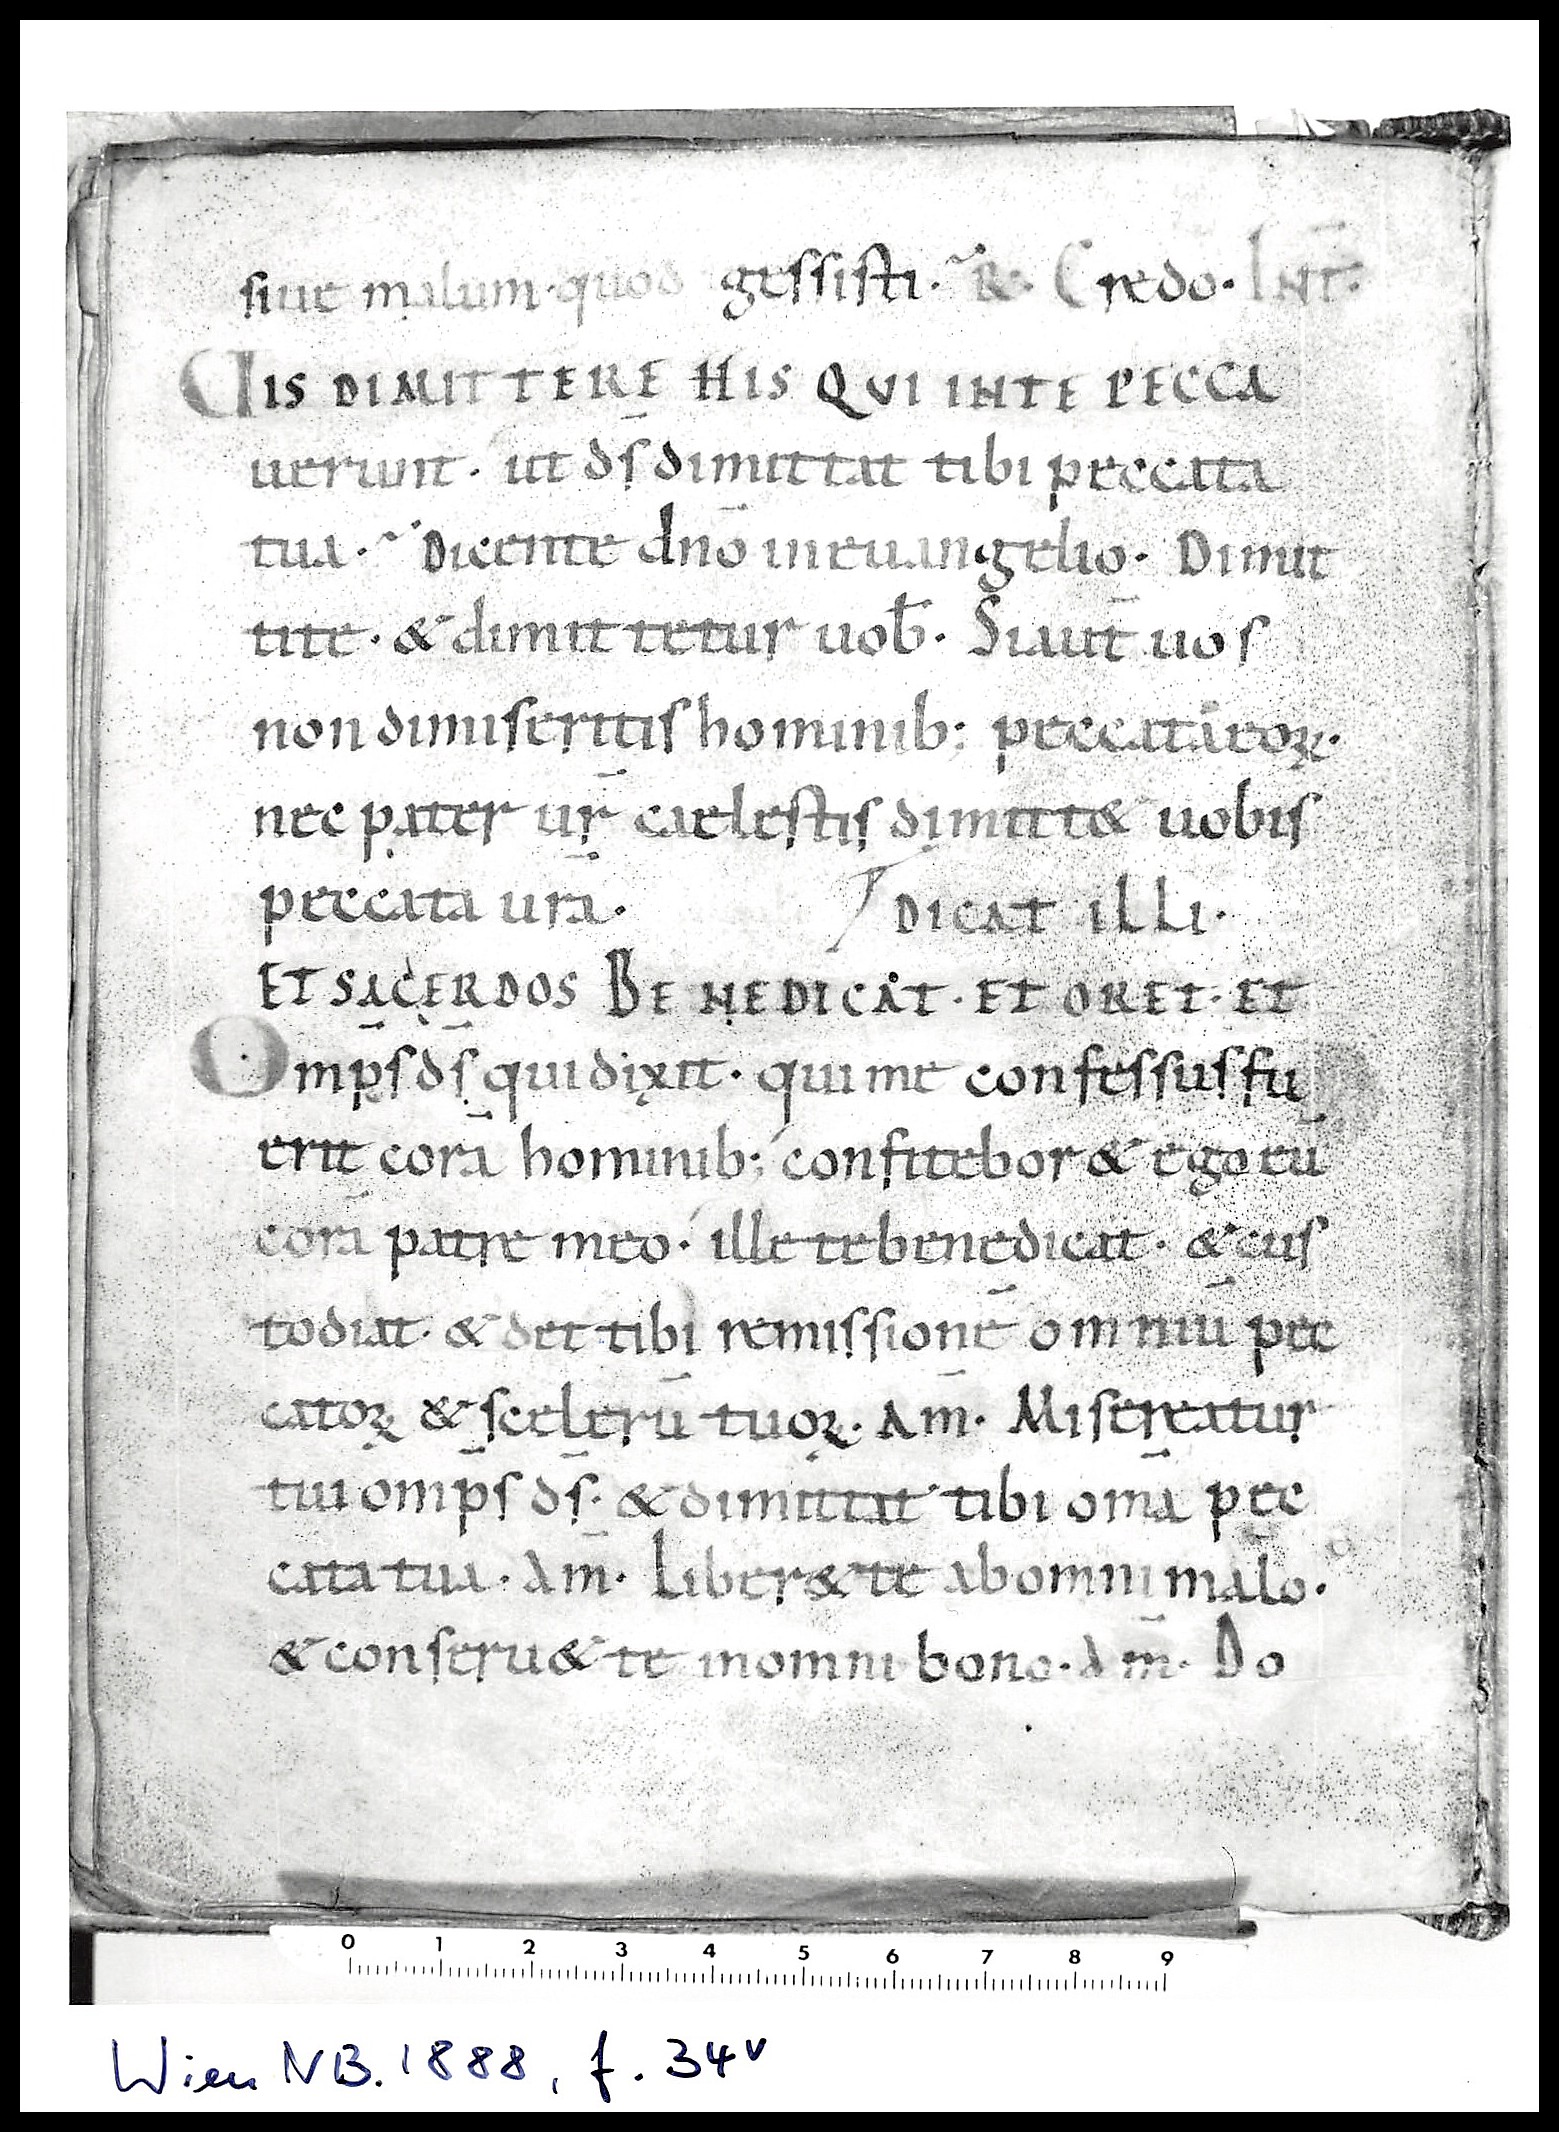 siue malum quod gessisti· R̄· Credo· INT̄·
UIS DIMITTERE HIS QUI INTE PECCA
uerunt· ut d̄s dimittat tibi peccata
tua· Dicente dnō ineuangelio· Dimit
tite· & dimittetur uob̄· Siaut̄ uos
nondimiseritis hominib; peccataeoꝝ·
nec pater ur̄ caelestis dimitt& uobis
peccata ur̄a· DICAT ILLI·
ET SACERDOS BENEDICAT· ET ORET· ET
Omp̄s d̄s quidixit· quime confessusfu
erit corā hominib; confitebor & ego eū
corā patre meo· ille tebenedicat· & cus
todiat· & det tibi remissionē omniū pec
catoꝝ & scelerū tuoꝝ· Am· Misereatur
tui omp̄s d̄s· & dimittat tibi om̄a pec
cata tua· Am̄· Liber& te abomnimalo·
& conseru& te inomni bono· Am̄· Do
0 1 2 3 4 5 6 7 8 9
Wien NB. 1888, f. 34v